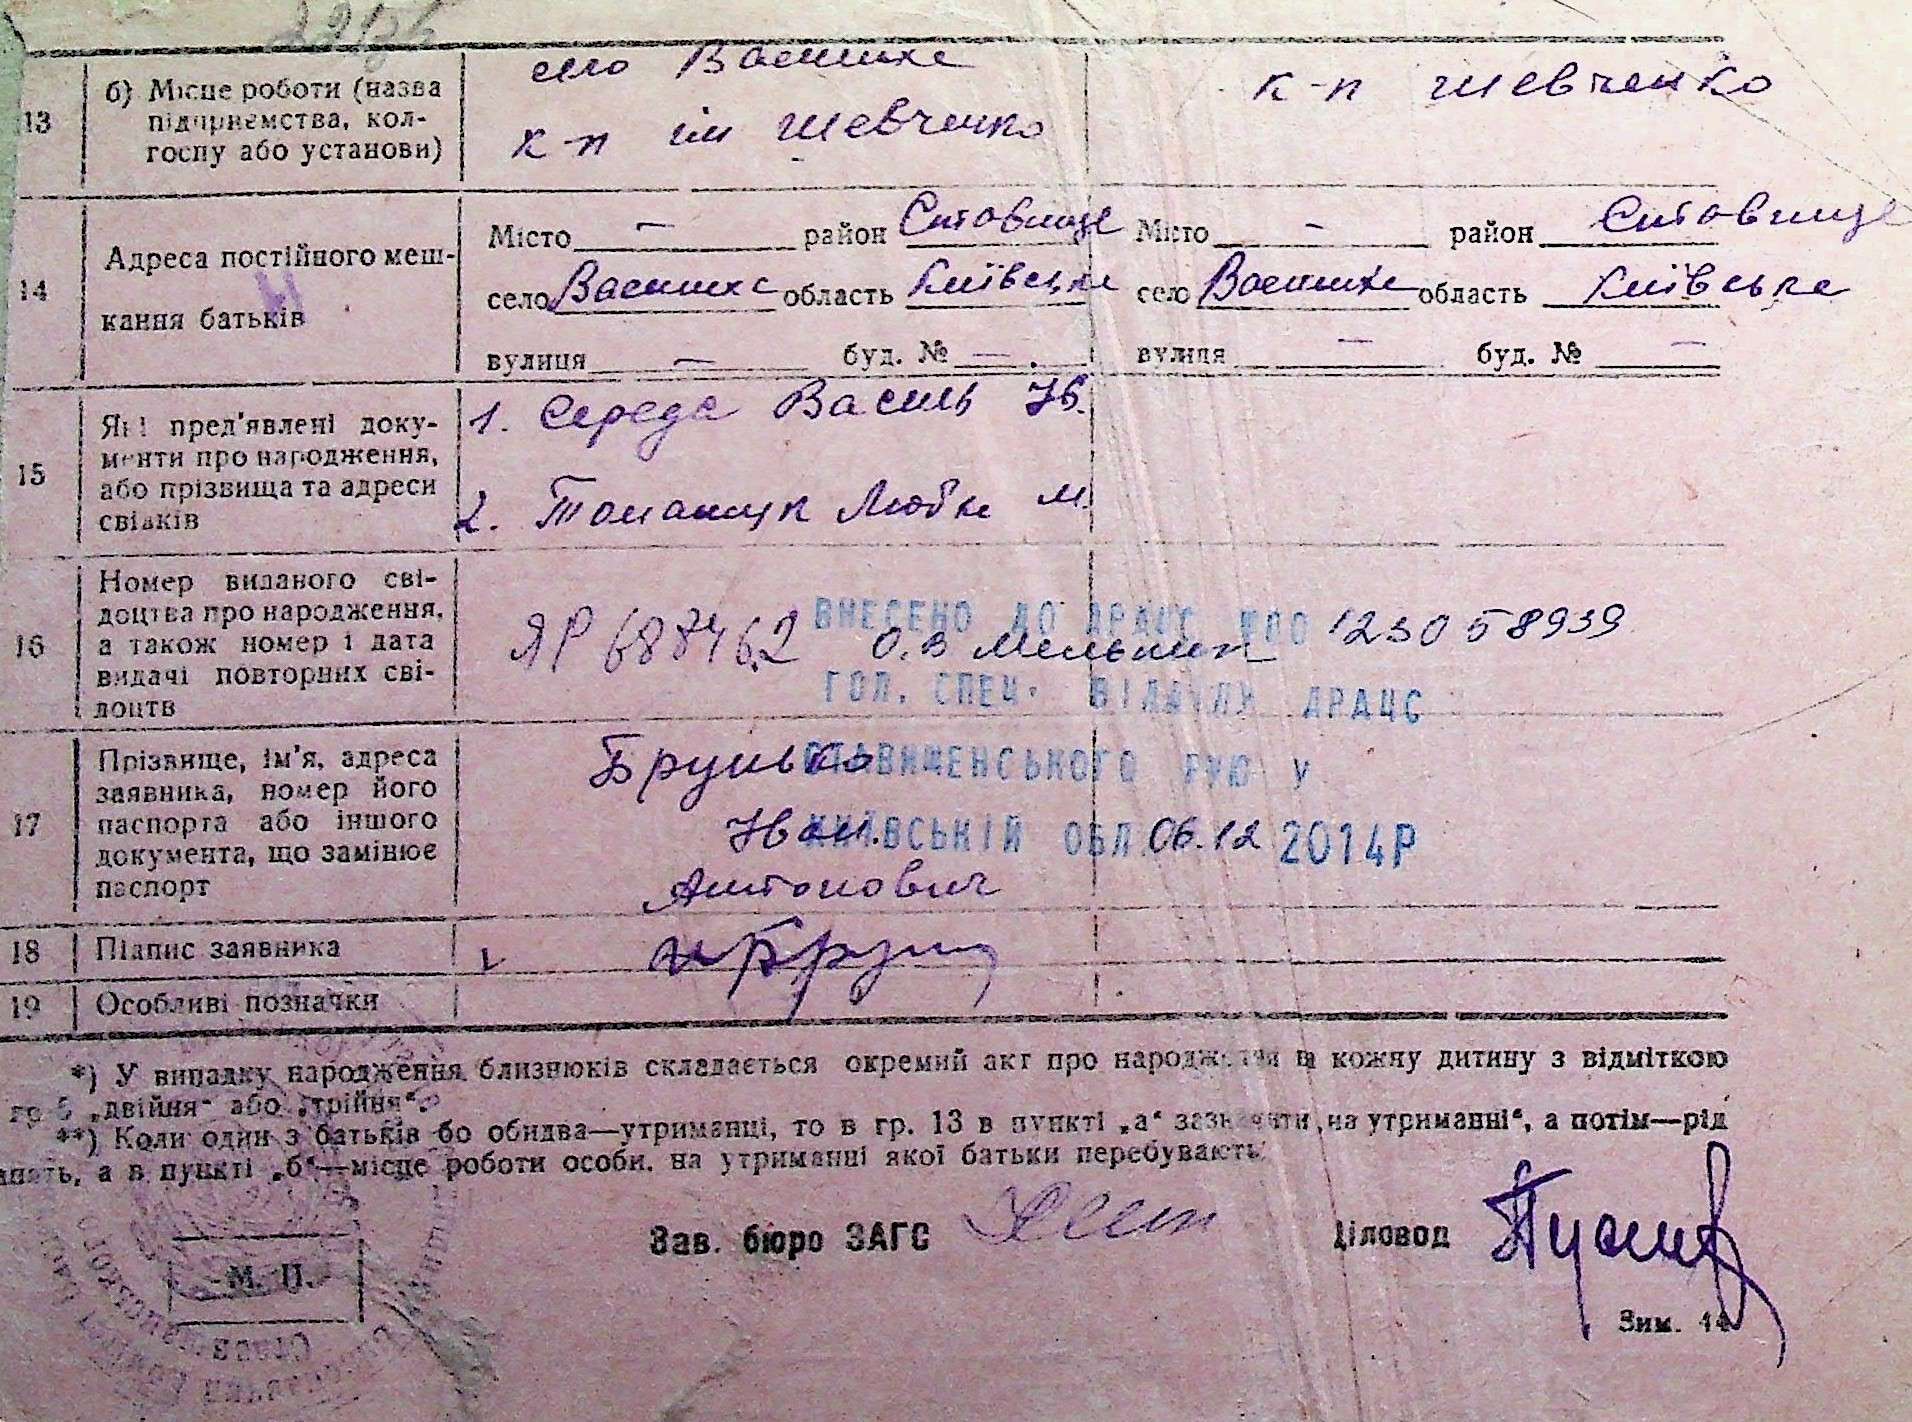 13 б) Місце роботи (назва підприємства, колгоспу або установи)
село Василиха
к-п ім Шевченко
к-п Шевченко
14 Адреса постійного мешкання батьків
Місто — район Ставище
село Василиха область Київська
вулиця — буд. № —
Місто — район Ставище
село Василиха область Київська
вулиця — буд. № —
15 Які пред'явлені документи про народження, або прізвища та адреси свідків
1. Середа Василь Ів.
2. Томащук Люба М.
16 Номер виданого свідоцтва про народження, а також номер і дата видачі повторних свідоцтв
ЯР 687462
ВНЕСЕНО ДО ДРАЦС 123058939
О.В Мельник
ГОЛ. СПЕЦ. ВІДДІЛУ ДРАЦС
СТАВИЩЕНСЬКОГО РУЮ У
КИЇВСЬКІЙ ОБЛ. 06.12 2014Р
17 Прізвище, ім'я, адреса заявника, номер його паспорта або іншого документа, що замінює паспорт
Іван
Антонович
18 Підпис заявника
19 Особливі позначки
*) У випадку народження близнюків складається окремий акт про народження на кожну дитину з відміткою
гр 5 „двійня" або „трійня".
**) Коли один з батьків бо обидва—утриманці, то в гр. 13 в пункті „а" зазначати „на утриманні", а потім—рід
а в пункті „б"—місце роботи особи. на утриманні якої батьки перебувають.
Зав. бюро ЗАГС
Діловод
М. П.
Зим. 14